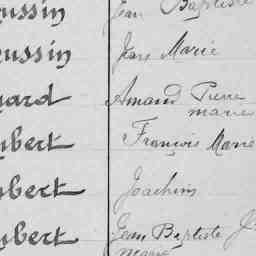 ussin Jean Baptiste
ussin Jean Marie
ard Amand Pierre
marie
bert François Marie
bert Joachim
bert Jean Baptiste J
marie